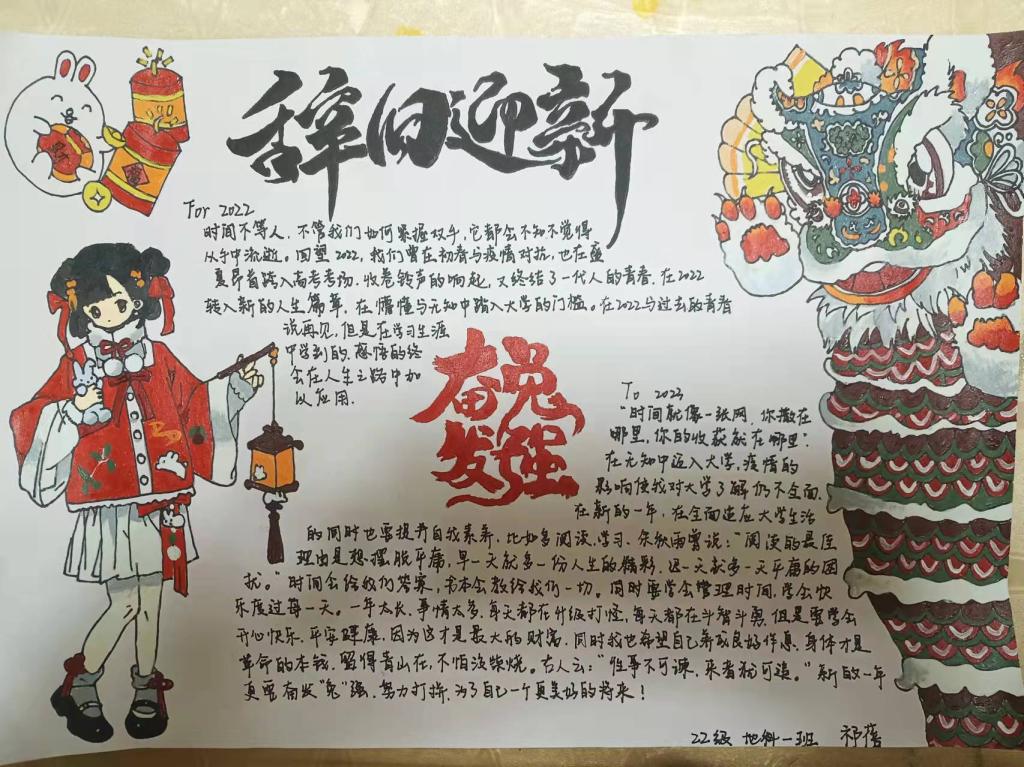 辞旧迎新
For 2022
时间不等人，不管我们如何紧握双手，它都会不知不觉得
从手中流逝。回望2022，我们曾在初春与疫情对抗，也在盛
夏昂首踏入高考考场，收卷铃声的响起，又终结了一代人的青春，在2022
转入新的人生篇章，在懵懂与无知中踏入大学的门槛。在2022与过去的青春
说再见，但是在学习生涯
中学到的，感悟的终
会在人生之路中加
以应用．
奋兔
发强
To 2023
“时间就像一张网，你撒在
哪里，你的收获就在哪里”
在无知中迈入大学，疫情的
影响使我对大学了解仍不全面，
在新的一年，在全面适应大学生活
的同时也需提升自我素养，比如多阅读，学习，余秋雨曾说：“阅读的最佳
理由是想摆脱平庸，早一天就多一份人生的精彩，迟一天就多一天平庸的困
扰。”时间会给我们答案，书本会教给我们一切。同时要学会管理时间，学会快
乐度过每一天。一年太长，事情太多，每天都在升级打怪，每天都在斗智斗勇，但是要学会
开心快乐，平安健康，因为这才是最大的财富，同时我也希望自己养成良好作息，身体才是
革命的本钱，留得青山在，不怕没柴烧。古人云：“往事不可谏，来者犹可追。”新的一年
更要奋发“兔”强，努力打拼，为了自己一个更美好的将来！
22级 地科一班 祁蓓